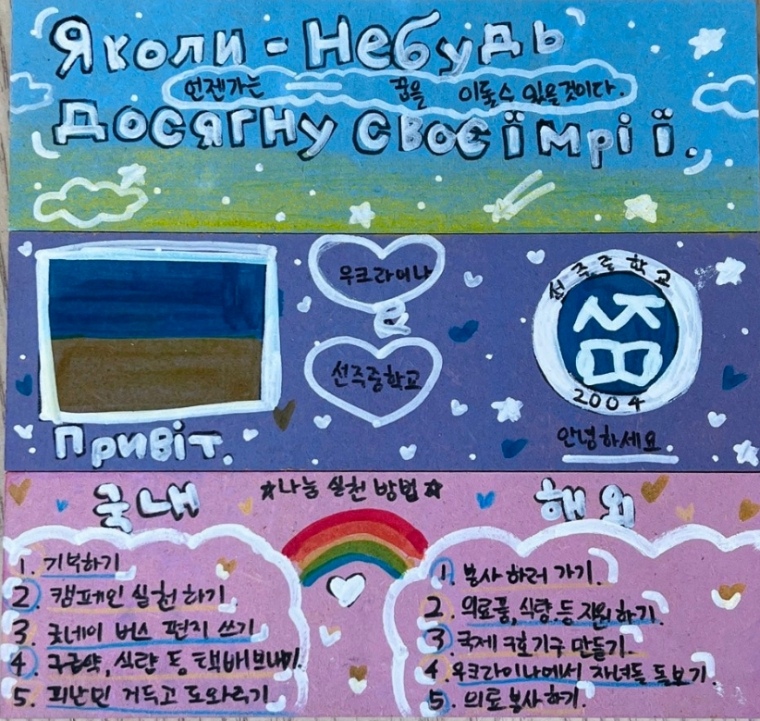 Яколи-Небудь
언젠가는 꿈을 이룰수 있을것이다.
Досягну своєї мрії.
우크라이나
&
선주중학교
Привіт.
선주중학교
2004
안녕하세요.
☆나눔 실천 방법☆
국내
1. 기부하기
2. 캠페인 실천 하기
3. 굿네이버스 편지 쓰기
4. 구급약, 식량 등 택배보내기.
5. 피난민 거두고 도와주기
해외
1. 봉사 하러 가기.
2. 의료품, 식량.등 지원하기.
3. 국제 구호기구 만들기.
4. 우크라이나에서 자녀들 돌보기.
5. 의료 봉사하기.